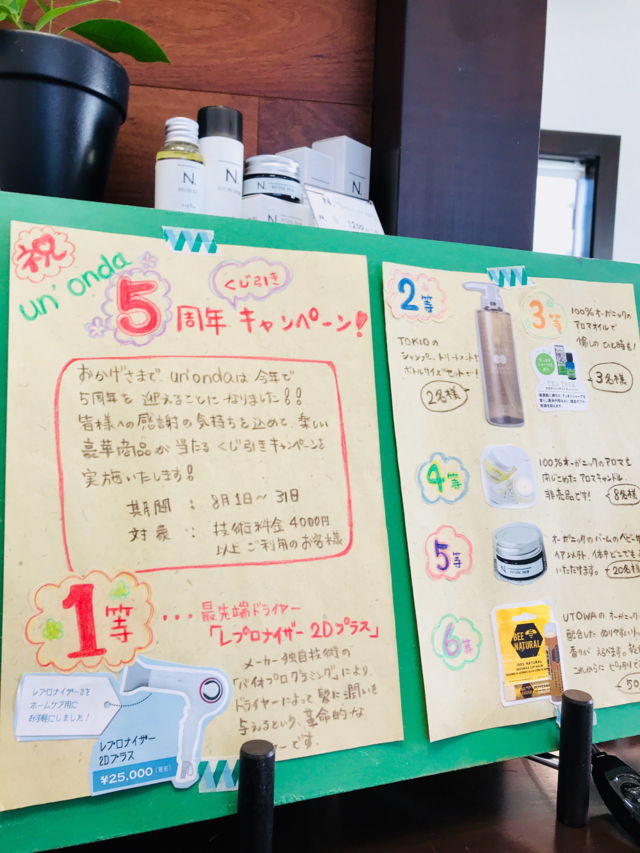 N.
N.
N.
祝
un'onda
くじ引き
5周年 キャンペーン!
おかげさまで、un'ondaは今年で
5周年を迎えることになりました!!
皆様への感謝の気持ちを込めて、楽しい
豪華商品が当たるくじ引きキャンペーンを
実施いたします!
期間 : 8月1日〜31日
対象 : 技術料金4000円
以上ご利用のお客様
1等 ・・・最先端ドライヤー
「レプロナイザー 2Dプラス」
メーカー独自技術の
「バイオプログラミング」により
ドライヤーによって髪に潤いを
与えるという、革命的な
ーです。
ホームケア用に
お手軽にしました!
レプロナイザー
2Dプラス
¥25,000
2等
TOKIOの
シャンプー、トリートメント
ボトルサイズセットで!
2名様
3等
100%オーガニックの
アロマオイルで
癒しのひと時を!
3名様
4等
100%オーガニックのアロマを
閉じこめたアロマキャンドル
非売品です!
8名様
5等
オーガニックのバームの
いただけます。
20名様
6等
BEE
NATURAL
UTOWAのオーガニック
配合した、
香りが
50